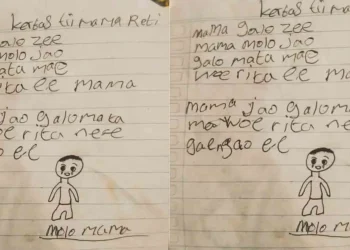 kertas tii mama Reti
galo zee
molo jao
mata mae
rita ee mama
jao galomata
woe rita nese
o ee
molo mama
kertas tii mama
mama galo zee
mama molo jao
galo mata mae
woe rita ee mama
mama jao galomata
ma woe rita nese
gaengao ee
molo mama